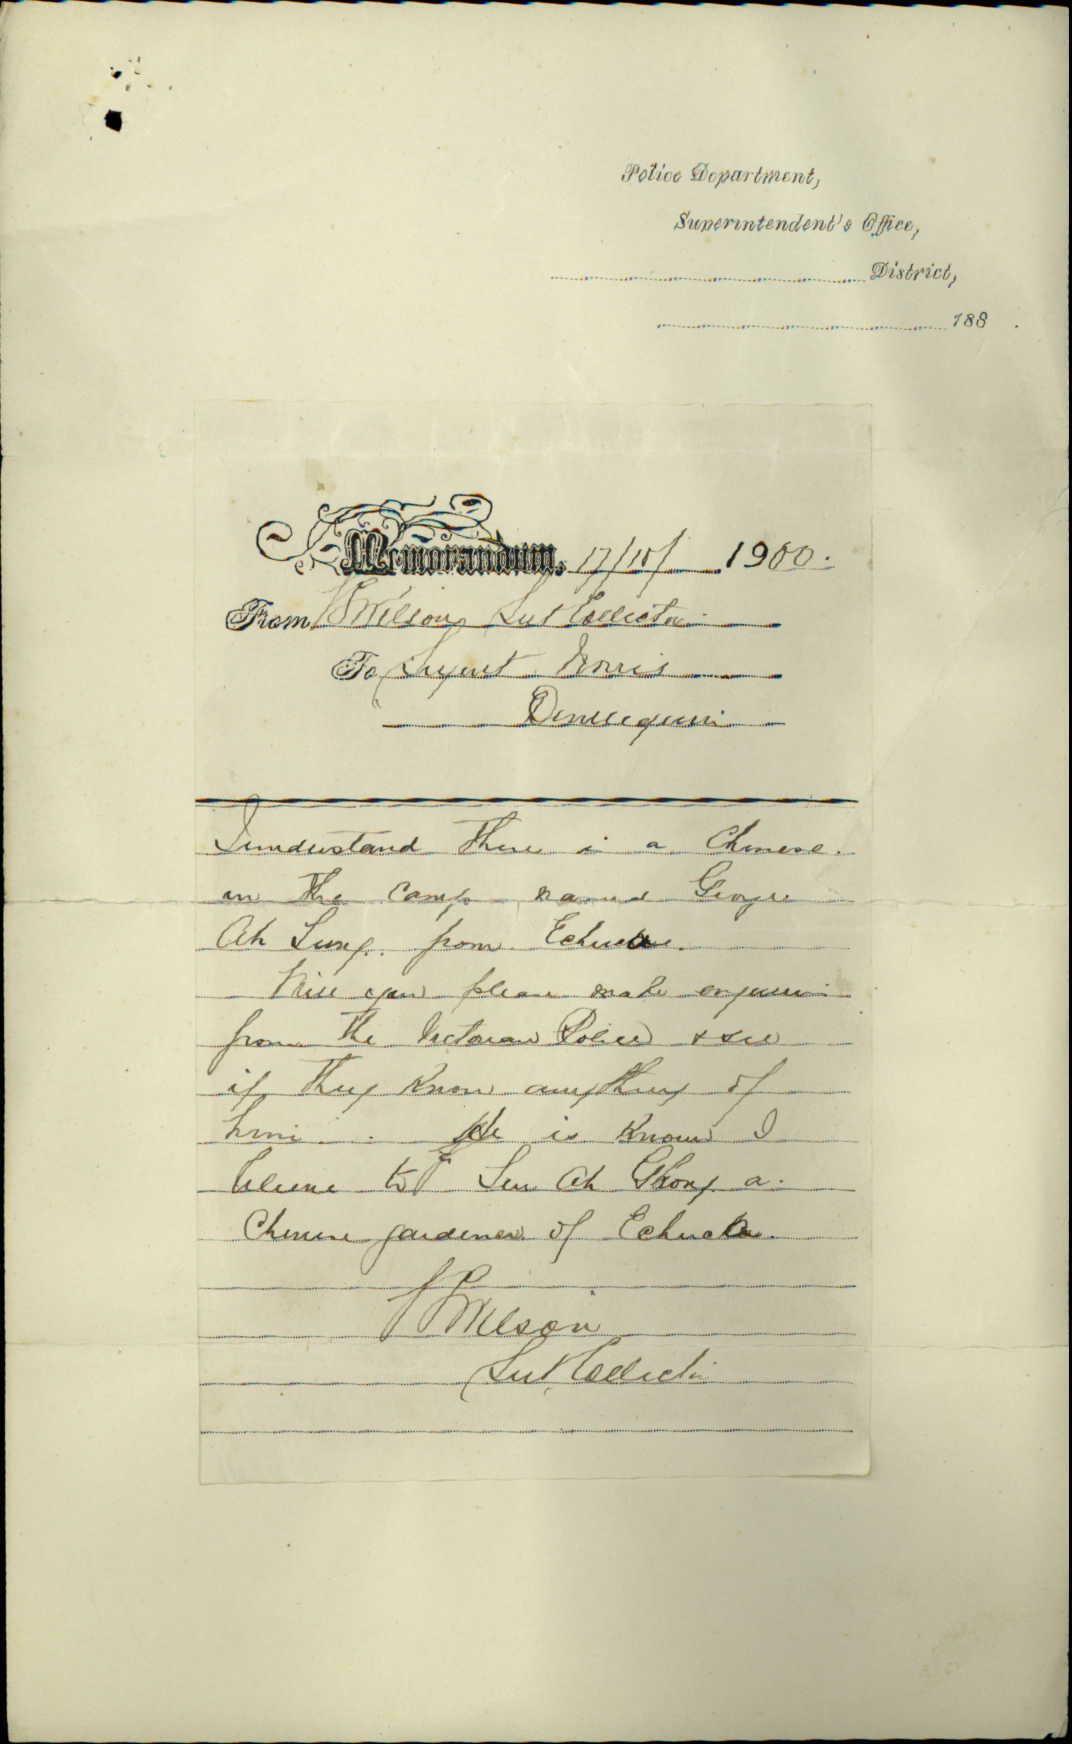 Police Department,
Superintendent's Office,
District,
188 .
Memorandum. 17/10/ 1900.
From Wilson Sub Collector
To Sergeant Norris
Deniliquin
I understand there is a Chinese.
in the Camp named George
Ah Lung. from Echuca.
Will you please make enquiries
from the Victorian Police & see
if they know anything of
him. He is known I
believe to Sun Ah Ghong a
Chinese gardener of Echuca.
Wilson
Sub Collector